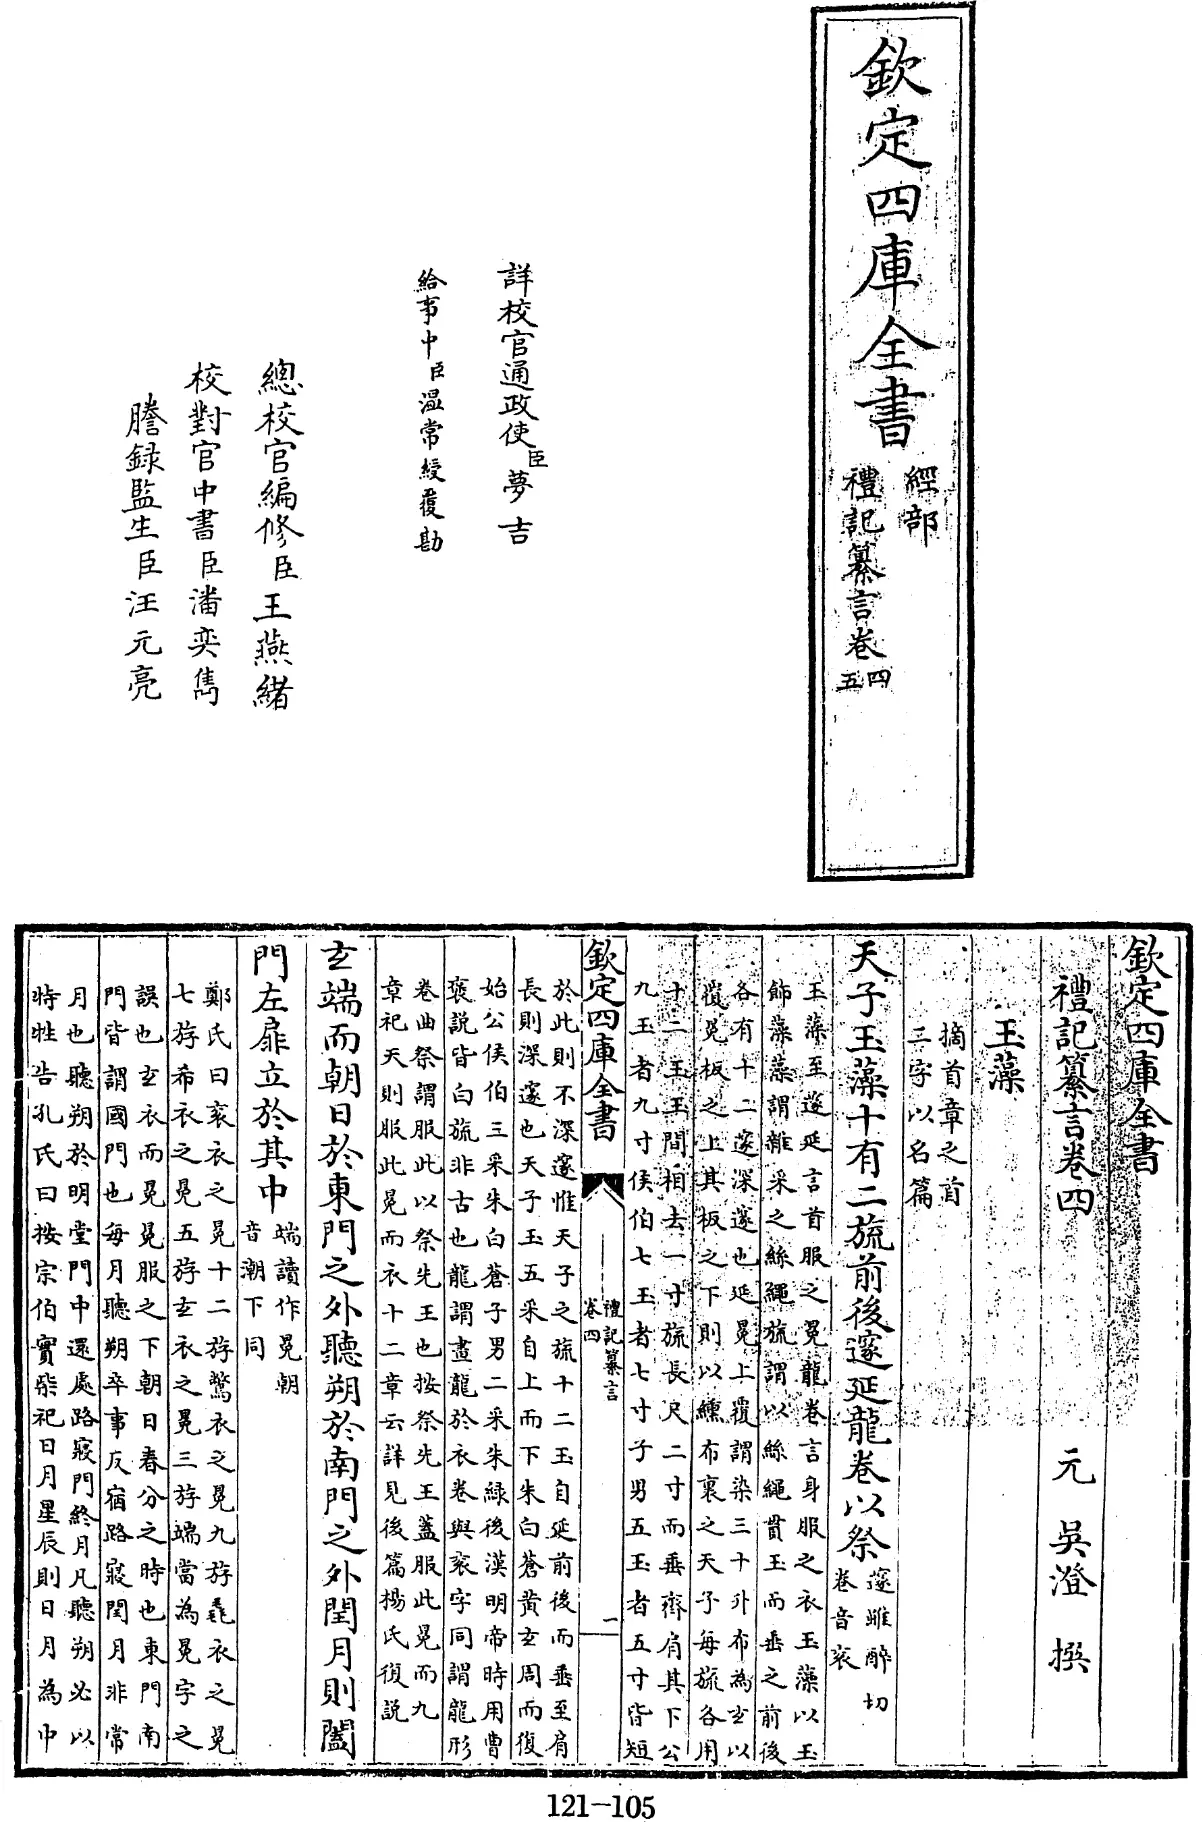 欽定四庫全書
經部
禮記纂言卷四
五
詳校官通政使臣夢吉
給事中臣溫常綬覆勘
總校官編修臣王燕緒
校對官中書臣潘奕雋
謄録監生臣汪元亮
欽定四庫全書
禮記纂言卷四
元 吳澄 撰
玉藻
摘首章之首
二字以名篇
天子玉藻十有二旒前後邃延龍卷以祭
邃雖醉切
卷音衮
玉藻至邃延言首服之冕龍卷言身服之衣玉藻以玉
飾藻藻謂雜采之絲繩旒謂以絲繩貫玉而垂之前後
各有十二邃深邃也延冕上覆謂染三十升布為玄以
覆冕板之上其板之下則以纁布裏之天子每旒各用
十二玉玉間相去一寸旒長尺二寸而垂齊肩其下公
九玉者九寸侯伯七玉者七寸子男五玉者五寸皆短
欽定四庫全書
禮記纂言
卷四
一
於此則不深邃惟天子之旒十二玉自延前後而垂至肩
長則深邃也天子玉五采自上而下朱白蒼黃玄周而復
始公侯伯三采朱白蒼子男二采朱緑後漢明帝時用曹
褒説皆白旒非古也龍謂畫龍於衣卷與衮字同謂龍形
卷曲祭謂服此以祭先王也按祭先王蓋服此冕而九
章祀天則服此冕而衣十二章云詳見後篇楊氏復説
玄端而朝日於東門之外聽朔於南門之外閏月則闔
門左扉立於其中
端讀作冕朝
音潮下同
鄭氏曰衮衣之冕十二斿鷩衣之冕九斿毳衣之冕
七斿希衣之冕五斿玄衣之冕三斿端當為冕字之
誤也玄衣而冕冕服之下朝日春分之時也東門南
門皆謂國門也每月聽朔卒事反宿路寢閏月非常
月也聽朔於明堂門中還處路寢門終月凡聽朔必以
特牲告孔氏曰按宗伯實柴祀日月星辰則日月為中
121-105